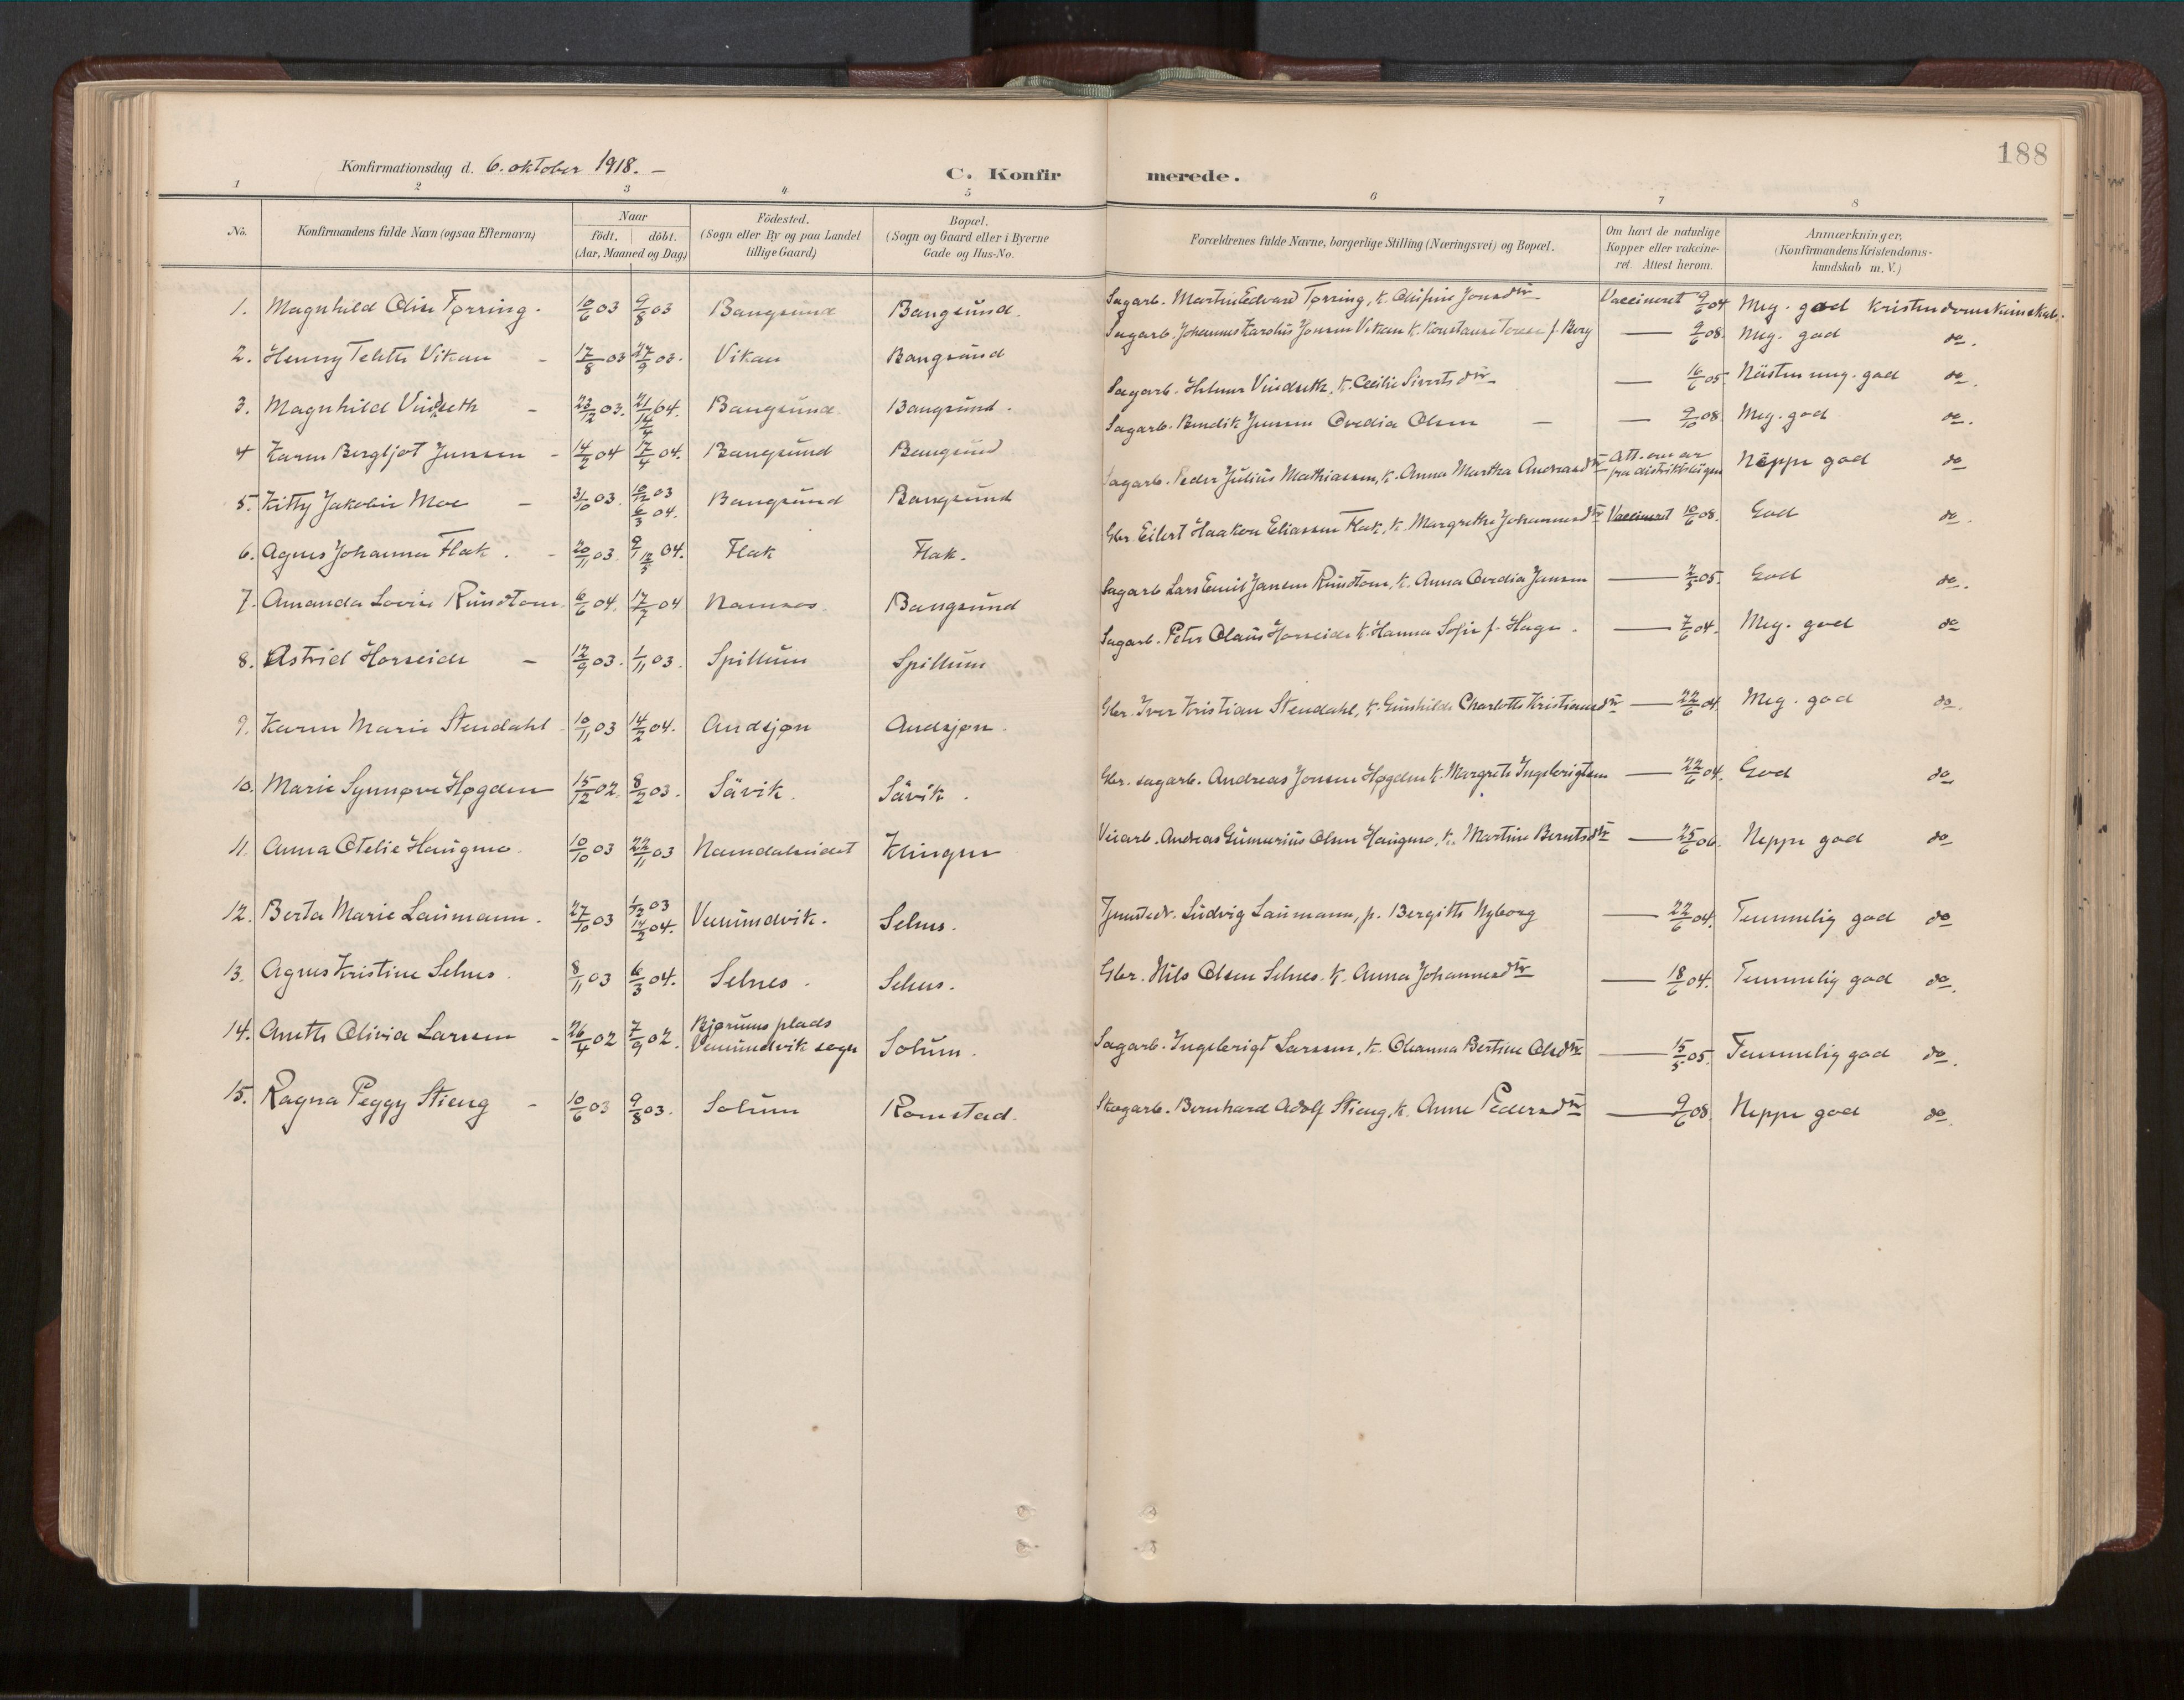 188
Konfirmationsdag d. 6. oktober 1918. –
C. Konfirmerede.
1 2 3 4 5 6 7 8
No.
Konfirmandens fulde Navn (ogsaa Efternavn)
Naar
födt. döbt.
(Aar, Maaned og Dag)
Födested.
(Sogn eller By og paa Landet
tillige Gaard)
Bopæl.
(Sogn og Gaard eller i Byerne
Gade og Hus-No.
Forældrenes fulde Navne, borgerlige Stilling (Næringsvei) og Bopæl.
Om havt de naturlige
Kopper eller vakcine-
ret. Attest herom.
Anmærkninger.
(Konfirmandens Kristendoms-
kundskab m. V.)
1. Magnhild Oline Tørring. 10/6 03 9/8 03 Bangsund Bangsund. Sagarb. Martin Edvard Tørring, k. Olufine Jonsdtr Vaccineret 9/6 04 Meg. god kristendomskunskab.
2. Henny Tekth Vikan – 17/8 03 27/9 03. Vikan Bangsund Sagarb. Johannes Karolius Jonsen Vikan k. Konstanse f. Berg — 9/6 08. Meg. god do.
3. Magnhild Vindseth – 23/12 03. 21/1 14/4 04. Bangsund Bangsund. Sagarb. Hilmar Vindseth, k. Cecilie Sivertsdtr — 16/6 05. Nästen meg. god do.
4 Karen Bergljot Jensen – 14/2 04 17/4 04. Bangsund Bangsund Sagarb. Bendik Jensen Ovedia Olsen – — 9/10 08. Meg. god do.
5. Kitty Jakobie Moe – 31/10 03. 10/12 03 6/3 04. Bangsund Bangsund Sagarb. Peder Julius Mathiassen, k. Anna Martha Andreasdtr Att. om ar fra distriktslägen Neppe god do
6. Agnes Johanna Flak. – 20/11 03. 9/1 13/3 04. Flak Flak. Gbr. Eilert Haakon Eliassen Flak, k. Margrethe Johannesdtr Vaccineret 10/6 08. God do.
7. Amanda Lovise Rundtom. 6/6 04. 17/7 04 Namsos. Bangsund Sagarb Lars Emil Jansen Rundtom, k. Anna Ovedia Jensen — 2/5 05. God do.
8. Astrid Horseide – 12/9 03. 1/11 03. Spillum Spillum Sagarb. Peter Olaus Horseide k. Hanna Sofie f. Hage. — 7/6 04. Meg. god do
9. Karen Marie Stendahl 10/11 03 14/2 04. Andsjøn Andsjøn. Gbr. Iver Kristian Stendahl, k. Gunhilde Charlotte Kristiansdtr — 22/6 04. Meg. god do.
10. Marie Synnøve Høgden 15/12 02. 8/2 03. Sävik. Sävik. Gbr. sagarb. Andreas Jonsen Høgden k. Margrete Ingebrigtsen — 22/6 04. God do
11. Anna Otelie Haugmo. 10/10 03 22/11 03 Namdaleidet Klingen Veiarb. Andreas Gunnerius Olsen Haugmo, k. Martine Berntsdtr — 25/6 06. Neppe god do
12. Berta Marie Laumann. 27/10 03 1/12 03 14/2 04. Vemundvik. Selnes. Ludvig Laumann, p. Bergitte Nyborg — 22/6 04. Temmelig god do
13. Agnes Kristine Selnes. 8/11 03 6/3 04. Selnes. Selnes. Gbr. Nils Olsen Selnes. k. Anna Johannesdtr — 18/6 04. Temmelig god do.
14. Aneth Olivia Larsen – 26/4 02 7/9 02. Bjørums plads Vemundvik sogn Solum. Sagarb. Ingebrigt Larsen, k. Oleanna Bertine Olsdtr — 15/5 05. Temmelig god do.
15. Ragna Peggy Stieng – 10/6 03 9/8 03. Solum Romstad. Skogarb. Bernhard Adolf Stieng, k. Anne Pedersdtr — 9/6 08. Neppe god do.